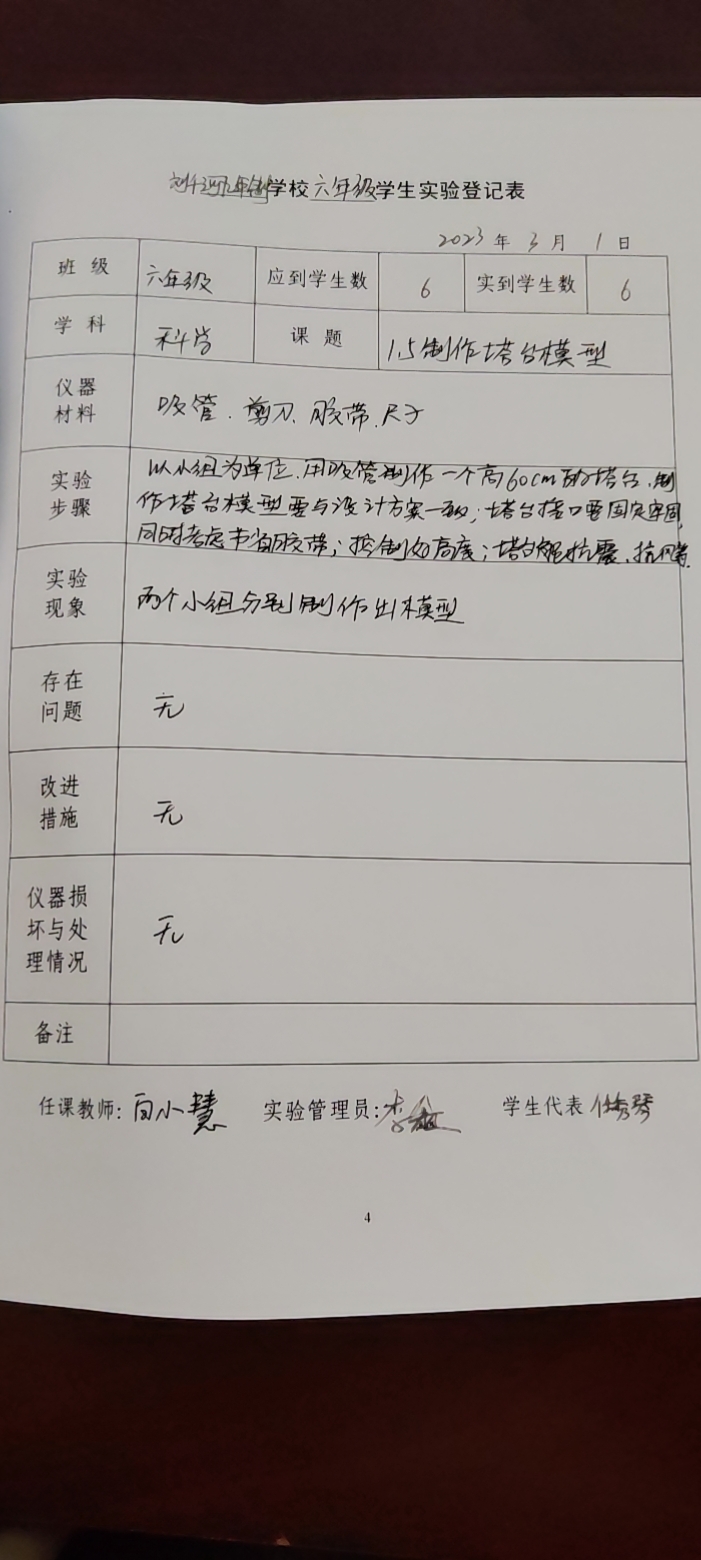 学校六年级学生实验登记表
2023年3月1日
班级 六年级 应到学生数 6 实到学生数 6
学科 科学 课题 1.5制作塔台模型
仪器
材料
吸管、剪刀、胶带、尺子
实验
步骤
以小组为单位,用吸管制作一个高60cm的塔台,制
作塔台模型要与设计方案一致;塔台接口要固定牢固,
同时考虑节省胶带;控制好高度;塔台能抗震、抗风等.
实验
现象
两个小组分别制作出模型
存在
问题
无
改进
措施
无
仪器损
坏与处
理情况
无
备注
任课教师:向小慧 实验管理员: 学生代表
4